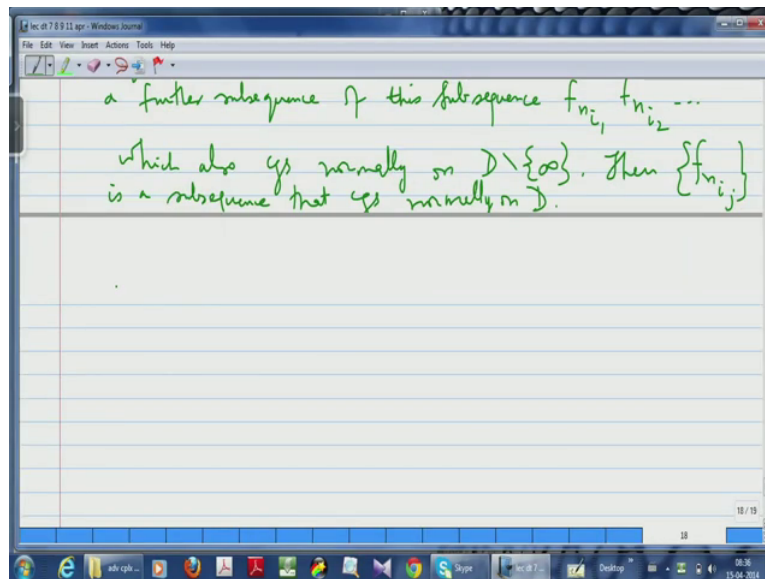 lec dt 7 8 9 11 apr - Windows Journal
File Edit View Insert Actions Tools Help
a further subsequence of this subsequence f_{n_{i_1}} f_{n_{i_2}} ...
which also cgs normally on D\{∞}. Then {f_{n_{i_j}}}
is a subsequence that cgs normally on D.
18 / 19
18
adv cplx ...
Skype
lec dt 7 ...
Desktop
08:36
15-04-2014